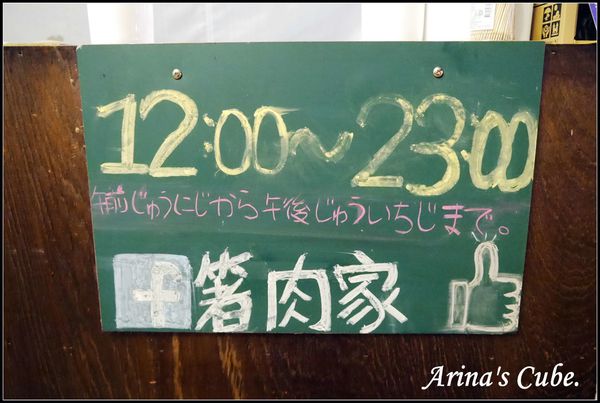 12:00~23:00
午前じゅうにじから午後じゅういちじまで。
f 箸肉家
Arina's Cube.